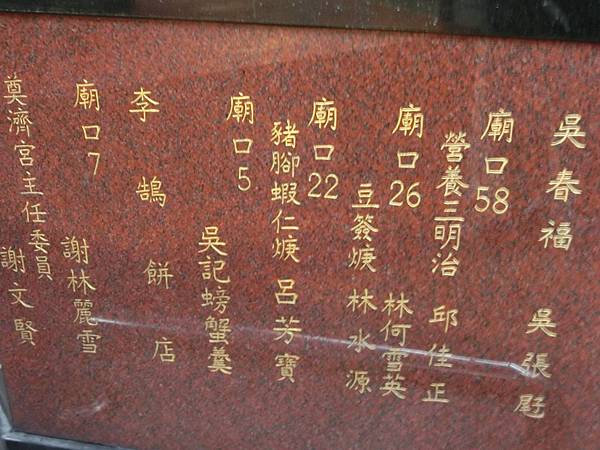 吳春福 吳張
廟口58
營養三明治 邱佳正
廟口26 林何雪英
豆簽焿 林水源
廟口22
豬腳蝦仁焿 呂芳寶
廟口5
吳記螃蟹羹
李鵠餅店
廟口7 謝林麗雪
奠濟宮主任委員 謝文賢